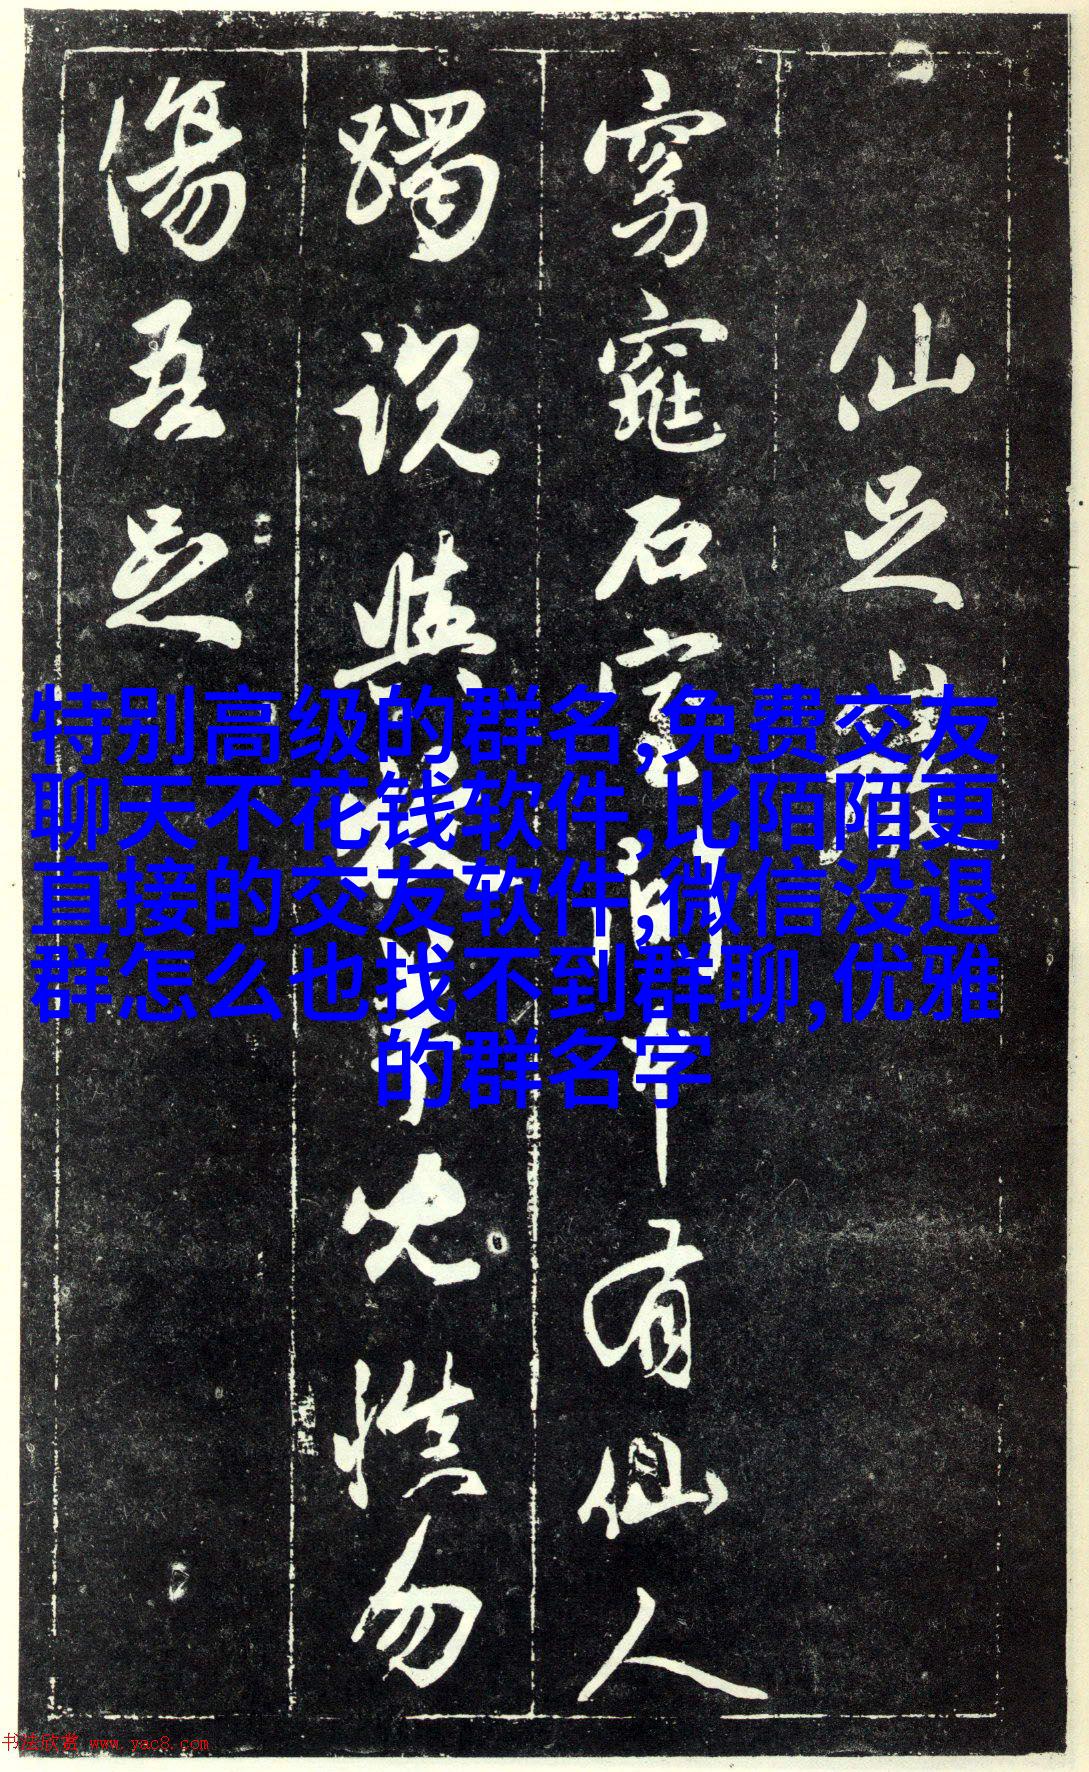 仙足巖
窈窕石室間中有仙人
躅說與牧羊兒慎勿
傷吾足
特别高级的群名,免费交友
聊天不花钱软件,比陌陌更
直接的交友软件,微信没退
群怎么也找不到群聊,优雅
的群名字
书法欣赏 www.yac8.com